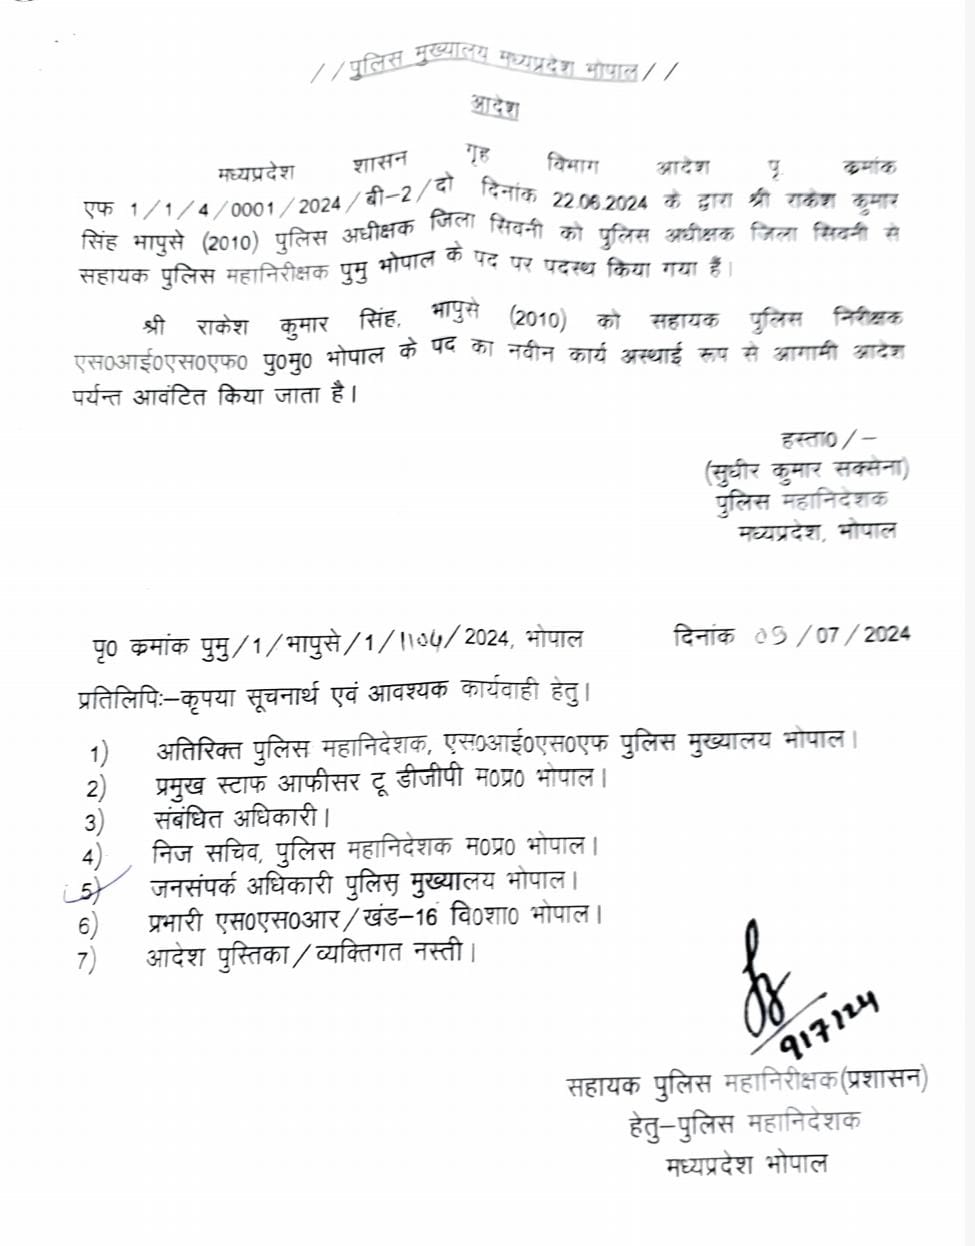 //पुलिस मुख्यालय मध्यप्रदेश भोपाल//
आदेश
मध्यप्रदेश शासन गृह विभाग आदेश पृ क्रमांक
एफ 1/1/4/0001/2024/बी-2/दो दिनांक 22.06.2024 के द्वारा श्री राकेश कुमार
सिंह भापुसे (2010) पुलिस अधीक्षक जिला सिवनी को पुलिस अधीक्षक जिला सिवनी से
सहायक पुलिस महानिरीक्षक पुमु भोपाल के पद पर पदस्थ किया गया हैं।
श्री राकेश कुमार सिंह, भापुसे (2010) को सहायक पुलिस निरीक्षक
एस०आई०एस०एफ० पु०मु० भोपाल के पद का नवीन कार्य अस्थाई रूप से आगामी आदेश
पर्यन्त आवंटित किया जाता है।
हस्ता०/-
(सुधीर कुमार सक्सेना)
पुलिस महानिदेशक
मध्यप्रदेश, भोपाल
पृ० क्रमांक पुमु/1/भापुसे/1/1104/2024, भोपाल दिनांक 09/07/2024
प्रतिलिपिः-कृपया सूचनार्थ एवं आवश्यक कार्यवाही हेतु।
1) अतिरिक्त पुलिस महानिदेशक, एस०आई०एस०एफ पुलिस मुख्यालय भोपाल।
2) प्रमुख स्टाफ आफीसर टू डीजीपी म०प्र० भोपाल।
3) संबंधित अधिकारी।
4) निज सचिव, पुलिस महानिदेशक म०प्र० भोपाल।
5) जनसंपर्क अधिकारी पुलिस मुख्यालय भोपाल।
6) प्रभारी एस०एस०आर/खंड-16 वि०शा० भोपाल।
7) आदेश पुस्तिका/व्यक्तिगत नस्ती।
9/7/24
सहायक पुलिस महानिरीक्षक(प्रशासन)
हेतु-पुलिस महानिदेशक
मध्यप्रदेश भोपाल